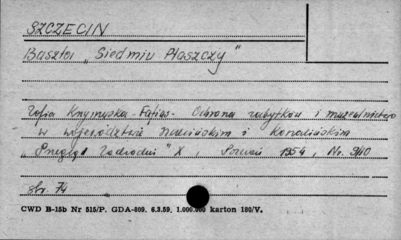 SZCZECIN
Baszta „Siedmiu Płaszczy"
Zofia Krzymuska-Fafius- Ochrona zabytków i muzealnictwo
w województwie szczecińskim i koszalińskim
„Przegląd Zachodni" X, Poznań 1954, Nr. 9/10
str. 74
CWD B-15b Nr 515/P. GDA-809. 6.3.59. 1.000.000 karton 180/V.